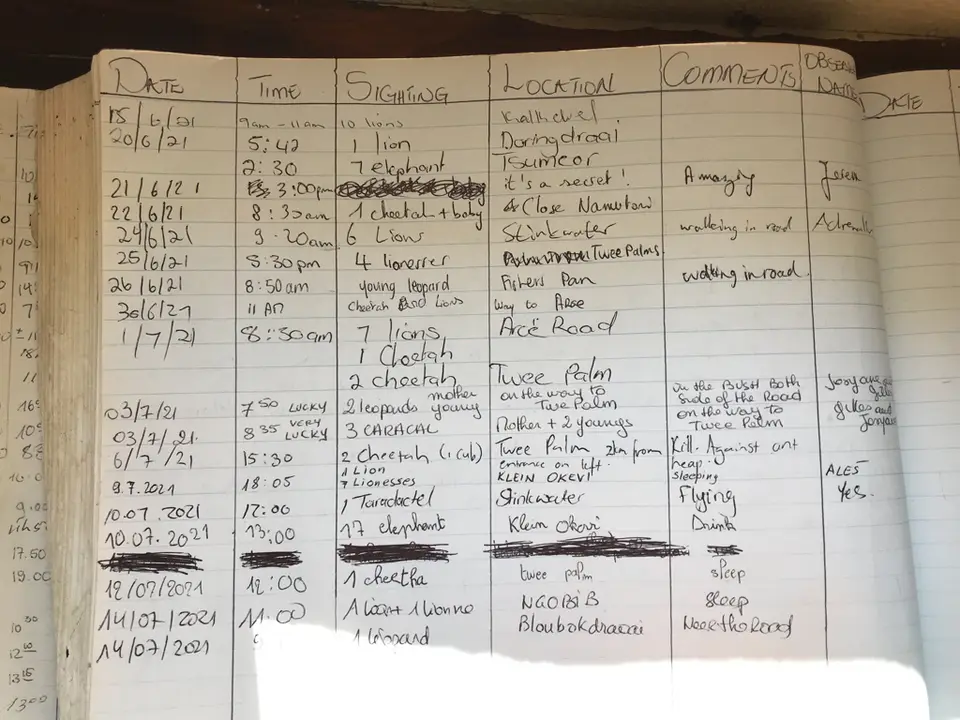 DATE TIME SIGHTING LOCATION COMMENTS OBSER
NAME
DATE
15/6/21 9am - 11am 10 lions
20/6/21 5:42 1 lion Doringdraai
2:30 7 elephant Tsumcor
21/6/21 3:00pm it's a secret! Amazing
22/6/21 8:30am 1 cheetah + baby Close Namutoni
24/6/21 9.20am 6 Lions Stinkwater walking in road
25/6/21 5:30pm 4 Twee Palms
26/6/21 8:50am young leopard Fishers Pan walking in road
30/6/21 11 AM Cheetah and Lions Way to Aroe
1/7/21 8:30am 7 lions Aroe Road
1 Cheetah
2 cheetah Twee Palm
03/7/21 7 50 LUCKY 2 leopards mother young on the way to Twee Palm in the BUSH Both side of the Road on the way to Twee Palm
03/7/21. 8 35 VERY LUCKY 3 CARACAL Mother + 2 youngs
6/7/21 15:30 2 Cheetah (1 cub) Twee Palm 2km from entrance on left. Kill. Against ant heap.
9.7.2021 18:05 1 Lion 7 Lionesses KLEIN OKEVI sleeping ALES
10.07.2021 12:00 1 Taradactel Stinkwater Flying Yes.
10.07.2021 13:00 17 elephant Klein Okevi Drink
12/07/2021 12:00 1 cheetha twee palm sleep
14/07/2021 11:00 NGOBIB Sleep
14/07/2021 1 leopard Bloubokdraai